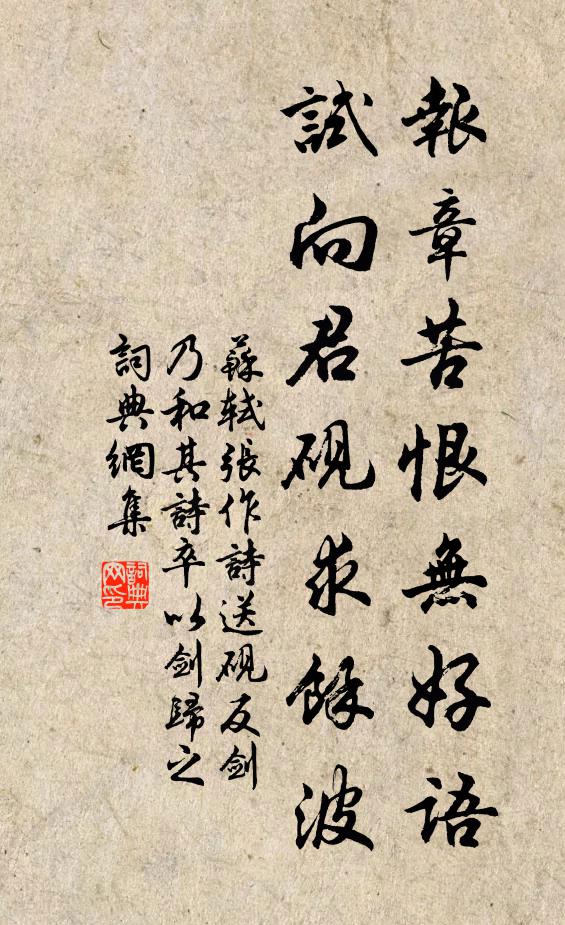 報章苦恨無好語
試向君硯求餘波
蘇軾張作詩送硯反劍
乃和其詩卒以劍歸之
詞典網集
詞典网印